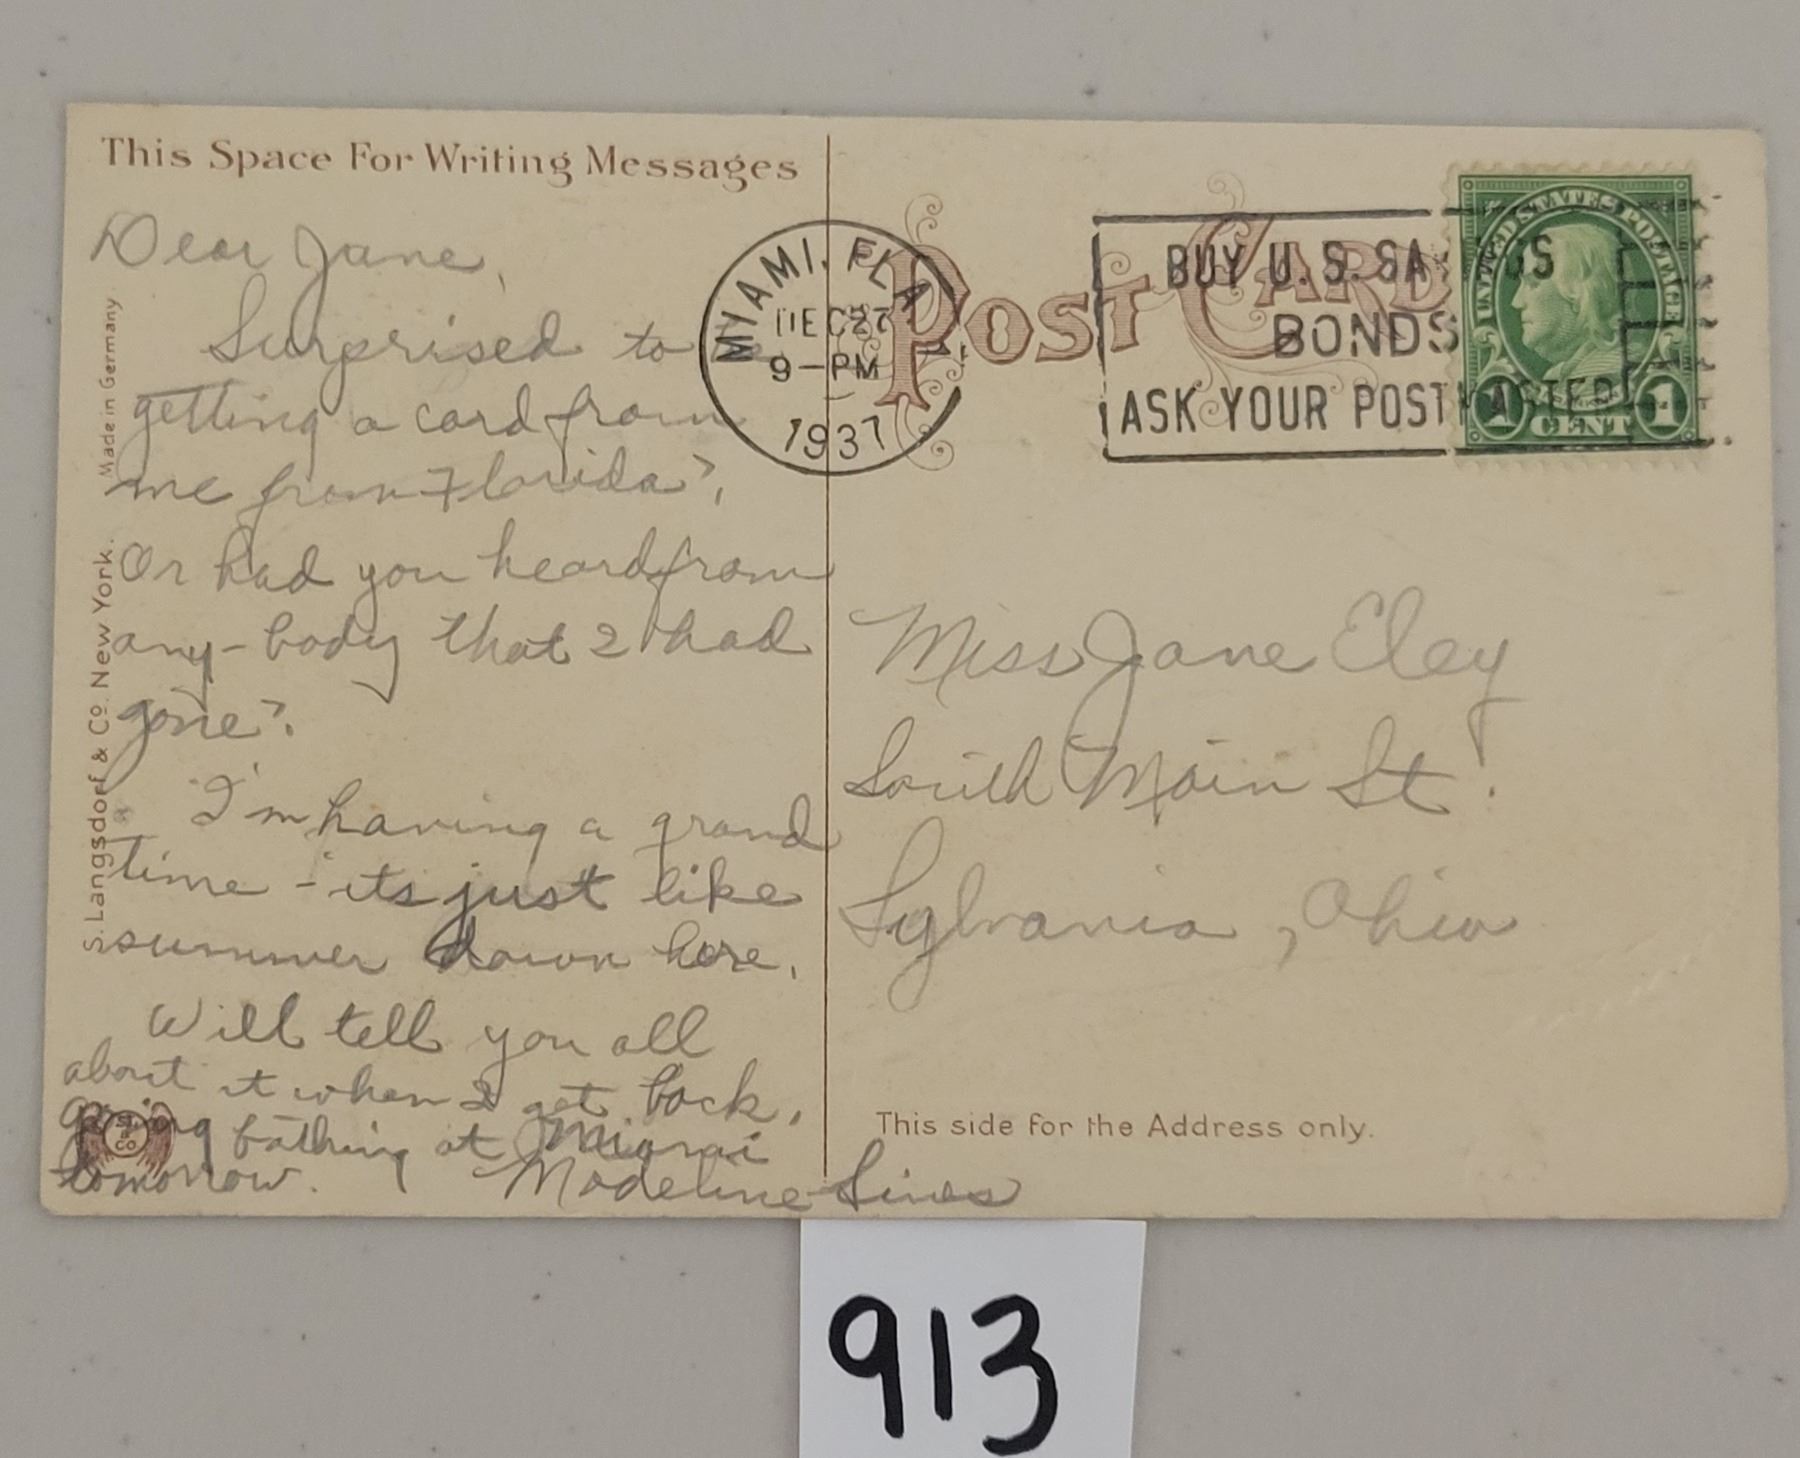 This Space For Writing Messages
Dear Jane,
Surprised to be
getting a card from
me from Florida?
Or had you heard from
any-body that I had
gone?
I'm having a grand
time - its just like
summer down here.
Will tell you all
about it when I get back.
Going bathing at Miami
tomorrow. Madeline
S. Langsdorf & Co. New York. Made in Germany
S.L. & Co
POST CARD
MIAMI, FLA
DEC 27
9-PM
1937
BUY U.S. SA GS
BONDS
ASK YOUR POSTMASTER
UNITED STATES POSTAGE
FRANKLIN
1 CENT 1
Miss Jane Eley
South Main St.
Sylvania, Ohio
This side for the Address only.
913